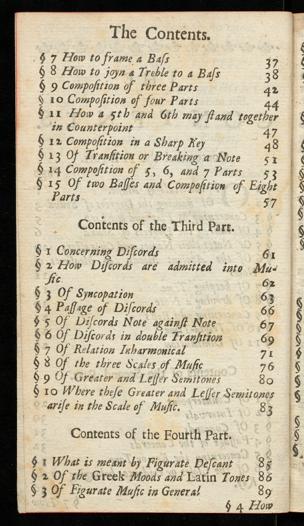 The Contents.
§ 7 How to frame a Baſs 37
§ 8 How to joyn a Treble to a Baſs 38
§ 9 Compoſition of three Parts 42
§ 10 Compoſition of four Parts 44
§ 11 How a 5th and 6th may ſtand together
in Counterpoint 47
§ 12 Compoſition in a Sharp Key 48
§ 13 Of Tranſition or Breaking a Note 51
§ 14 Compoſition of 5, 6, and 7 Parts 53
§ 15 Of two Baſſes and Compoſition of Eight
Parts 57
Contents of the Third Part.
§ 1 Concerning Diſcords 61
§ 2 How Diſcords are admitted into Mu-
ſic 62
§ 3 Of Syncopation 63
§ 4 Paſſage of Diſcords 66
§ 5 Of Diſcords Note againſt Note 67
§ 6 Of Diſcords in double Tranſition 69
§ 7 Of Relation Inharmonical 71
§ 8 Of the three Scales of Muſic 76
§ 9 Of Greater and Leſſer Semitones 80
§ 10 Where theſe Greater and Leſſer Semitones
ariſe in the Scale of Muſic. 83
Contents of the Fourth Part.
§ 1 What is meant by Figurate Deſcant 85
§ 2 Of the Greek Moods and Latin Tones 86
§ 3 Of Figurate Muſic in General 89
§ 4 How